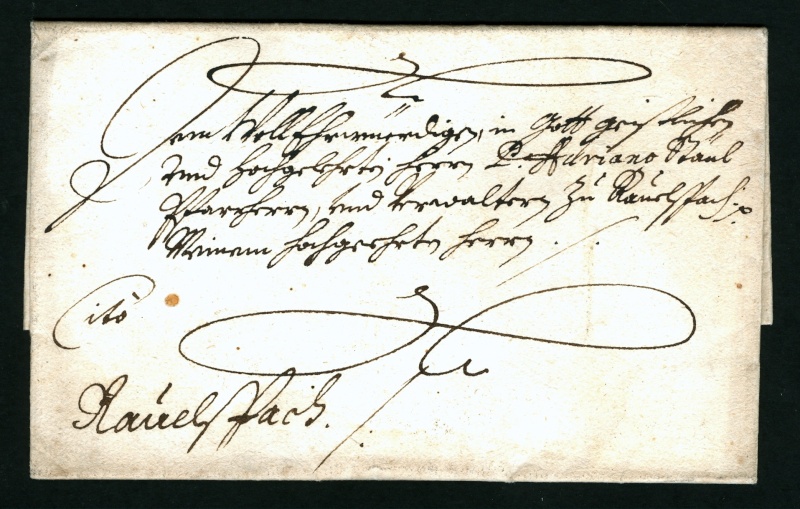 Dem WollEhrwüerdigen, in Gott geistlichen
Vnd Hochgelehrten Herrn P. Adriano Staul
Pfarrherrn, vnd verwaltern zu Rauelspach.
Meinem hochgeehrten Herrn.
Citò
Rauelspach.